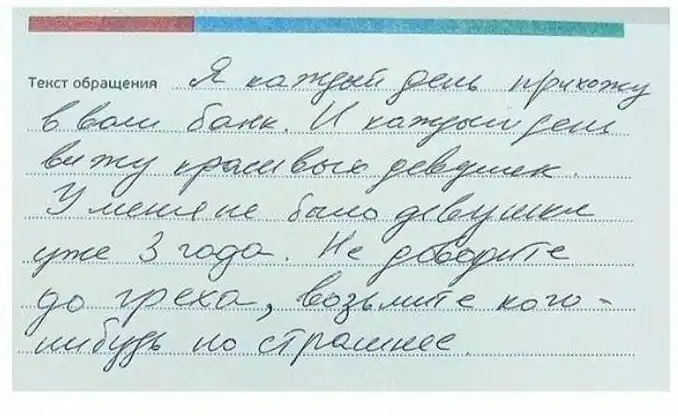 Текст обращения Я каждый день прихожу
в ваш банк. И каждый день
вижу красивых девушек.
У меня не было девушки
уже 3 года. Не доводите
до греха, возьмите кого-
нибудь по страшнее.